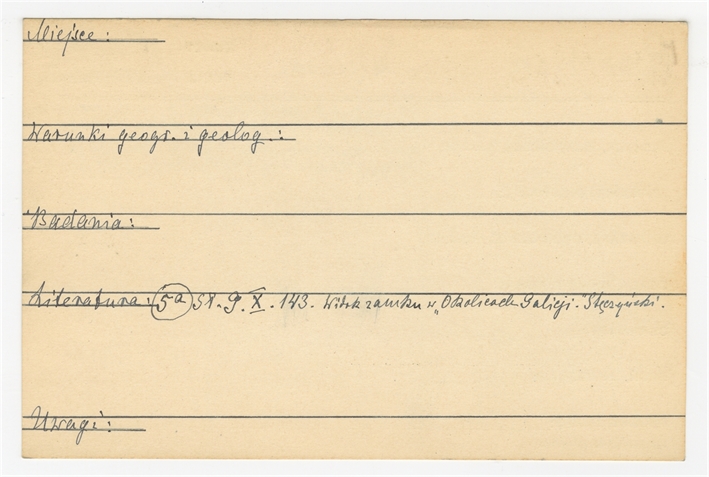 Miejsce:
Warunki geogr. i geolog.:
Badania:
Literatura: 5a Sł. G. X. 143. Widok zamku w „Okolicach Galicji." Stęczyński.
Uwagi: